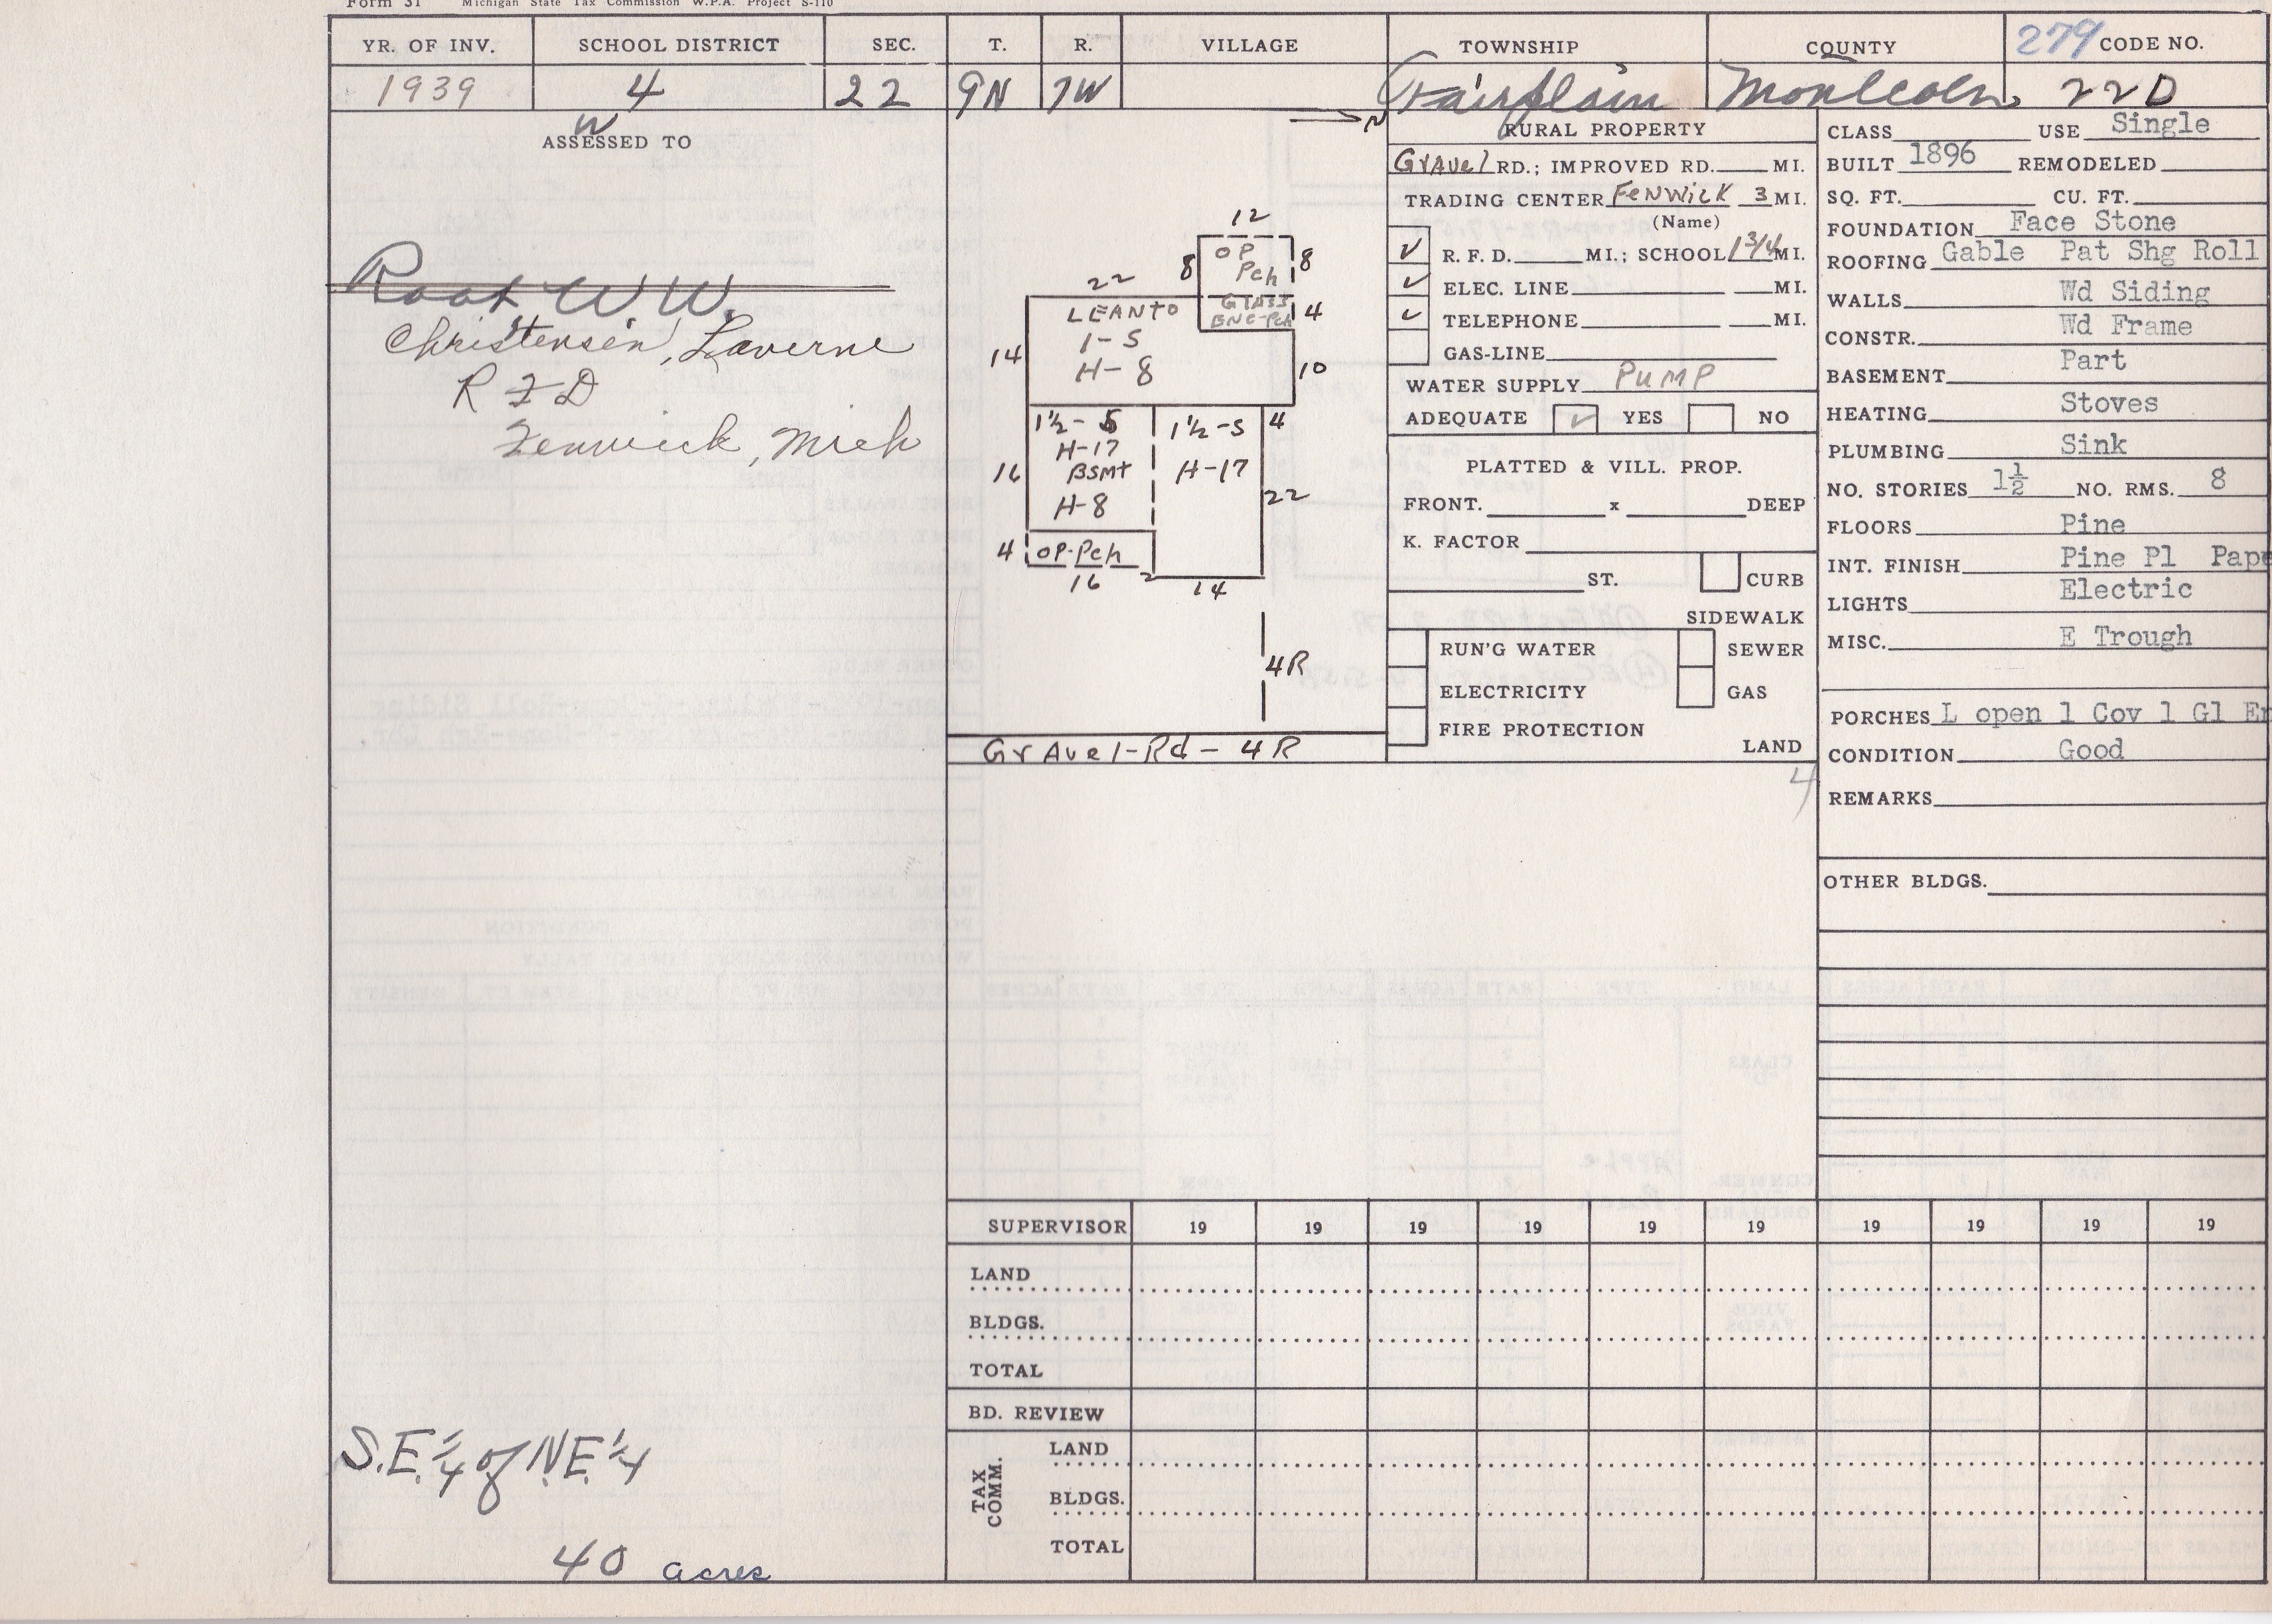 Form 31 Michigan State Tax Commission W.P.A. Project S-110
YR. OF INV. SCHOOL DISTRICT SEC. T. R. VILLAGE TOWNSHIP COUNTY 279 CODE NO.
1939 4 22 9N 7W Fairplain Montcalm 22D
ASSESSED TO
W
Root W.W.
Christensen, Laverne
R F D
Fenwick, Mich
S.E. 1/4 of N.E. 1/4
40 acres
N
12
OP
Pch
8
8
22
LEANTO
1-S
H-8
Glass
Enc-Pch
4
14
10
1½-S
H-17
BSMT
H-8
1½-S
H-17
4
16
22
4
OP-Pch
16
2
14
4R
Gravel-Rd-4R
RURAL PROPERTY
Gravel RD.; IMPROVED RD. MI.
TRADING CENTER Fenwick 3 MI.
(Name)
✓ R. F. D. MI.; SCHOOL 1 3/4 MI.
✓ ELEC. LINE MI.
✓ TELEPHONE MI.
GAS-LINE
WATER SUPPLY PUMP
ADEQUATE ✓ YES NO
PLATTED & VILL. PROP.
FRONT. x DEEP
K. FACTOR
ST. CURB
SIDEWALK
RUN'G WATER SEWER
ELECTRICITY GAS
FIRE PROTECTION
LAND
4
CLASS USE Single
BUILT 1896 REMODELED
SQ. FT. CU. FT.
FOUNDATION Face Stone
ROOFING Gable Pat Shg Roll
WALLS Wd Siding
CONSTR. Wd Frame
BASEMENT Part
HEATING Stoves
PLUMBING Sink
NO. STORIES 1½ NO. RMS. 8
FLOORS Pine
INT. FINISH Pine Pl Pape
LIGHTS Electric
MISC. E Trough
PORCHES L open 1 Cov 1 Gl En
CONDITION Good
REMARKS
OTHER BLDGS.
SUPERVISOR 19 19 19 19 19 19 19 19 19 19
LAND
BLDGS.
TOTAL
BD. REVIEW
TAX COMM.
LAND
BLDGS.
TOTAL